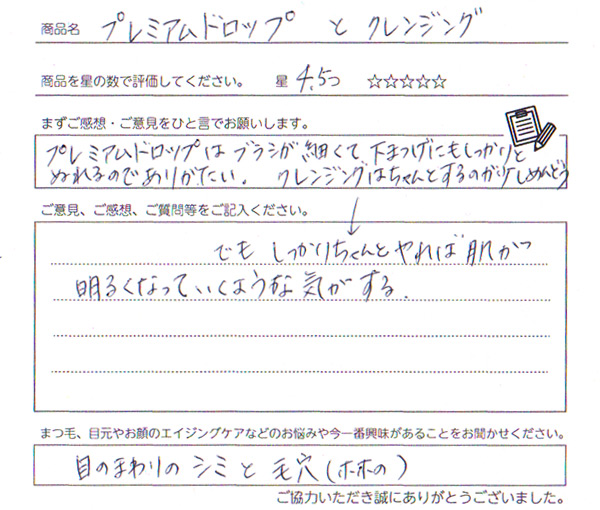 商品名 プレミアムドロップ と クレンジング
商品を星の数で評価してください。 星 4.5つ ☆☆☆☆☆
まずご感想・ご意見をひと言でお願いします。
プレミアムドロップは ブラシが細くて、下まつげにもしっかりと
ぬれるのでありがたい。 クレンジングはちゃんとするのが少しめんどう
ご意見、ご感想、ご質問等をご記入ください。
でも しっかりちゃんとやれば肌が
明るくなっていくような気がする.
まつ毛、目元やお顔のエイジングケアなどのお悩みや今一番興味があることをお聞かせください。
目のまわりの シミ と 毛穴(ホホの)
ご協力いただき誠にありがとうございました。